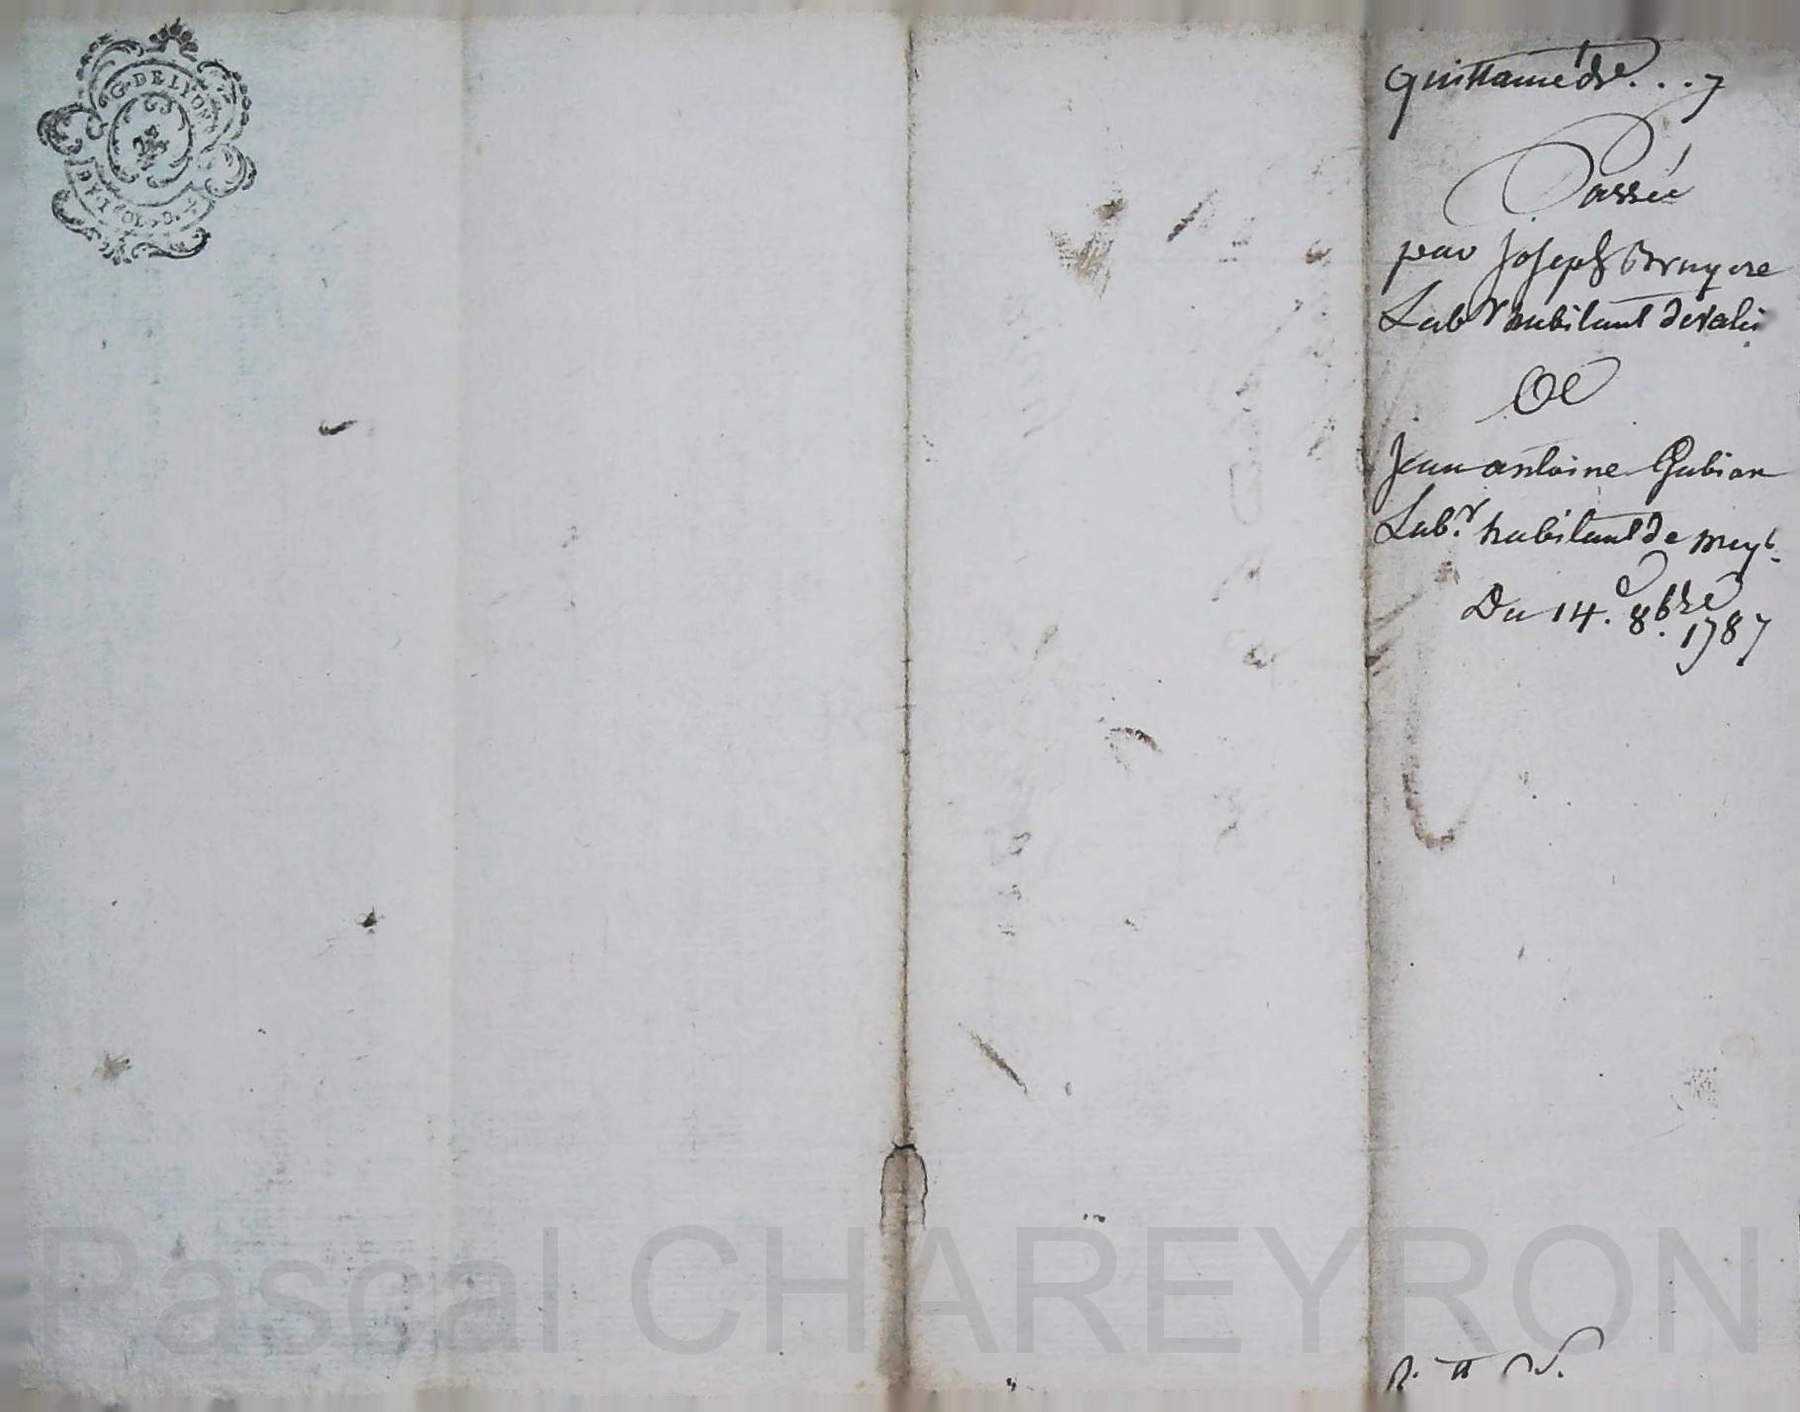 G. DE LYON
quittance de . . . 7
Passée
par Joseph Bruyere
Labr habitant de
A
Jean antoine Gubian
Labr. habitant de mey
Du 14e. 8bre. 1787
Pascal CHAREYRON